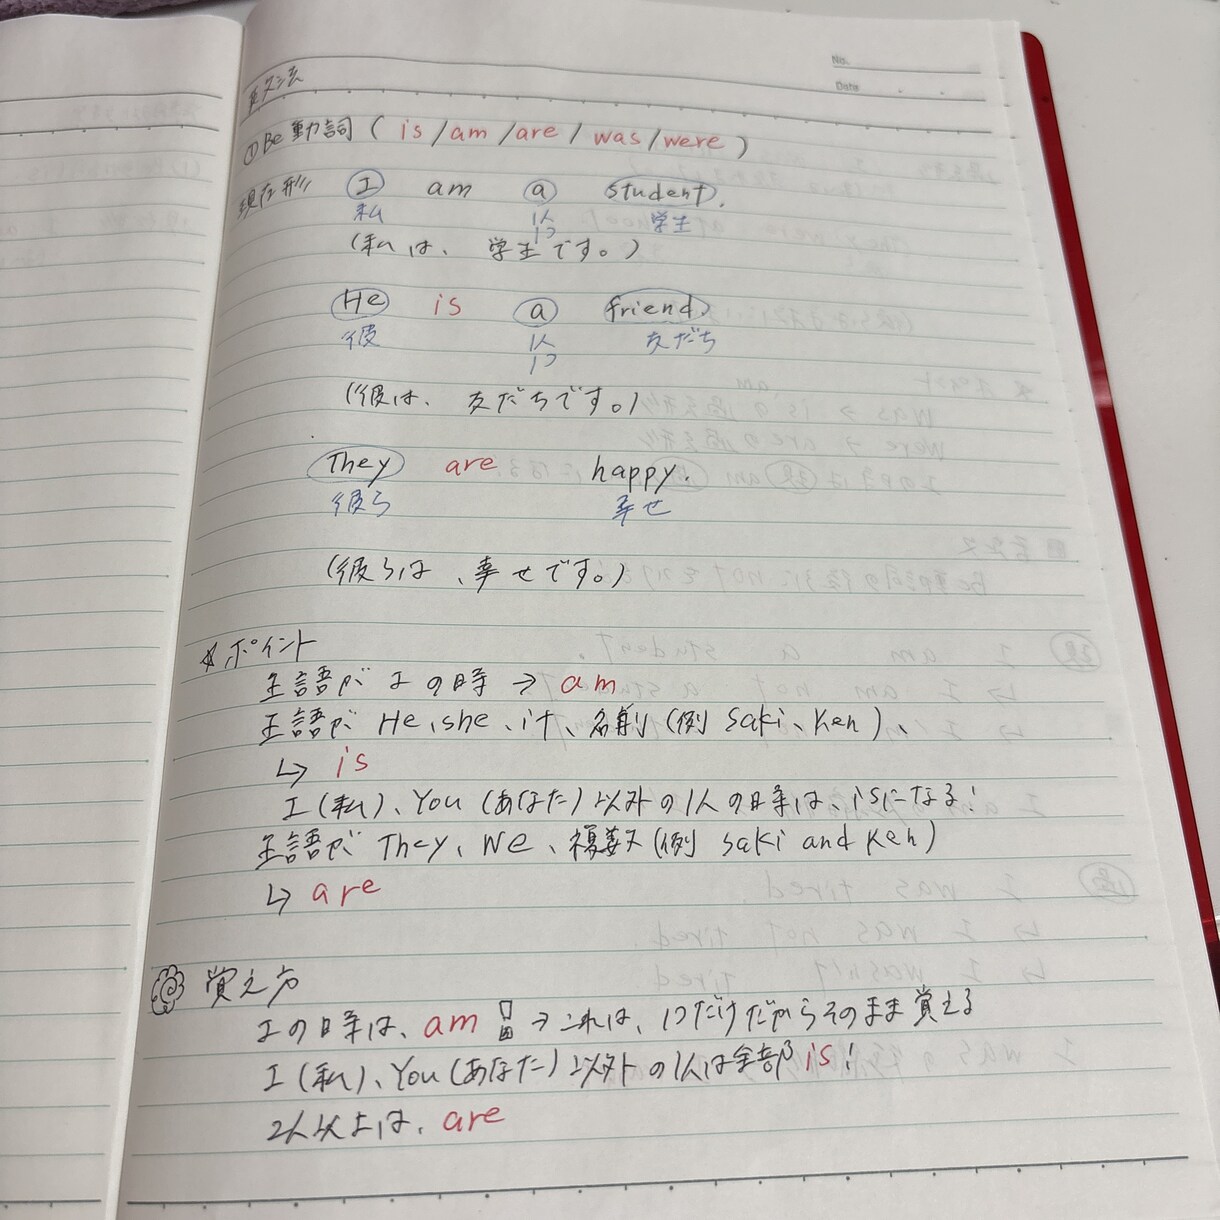 No.
Date
英文法
①Be動詞 (is/am/are/was/were)
現在形 I am a student.
私 1人 学生
1つ
(私は、学生です。)
He is a friend.
彼 1人 友だち
1つ
(彼は、友だちです。)
They are happy.
彼ら 幸せ
(彼らは、幸せです。)
☆ポイント
主語が I の時 → am
主語が He、she、it、名前(例 Saki、Ken)、
↳ is
I(私)、You(あなた)以外の1人の時は、isになる!
主語が They、We、複数(例 Saki and Ken)
↳ are
覚え方
Iの時は、am → これは、1つだけだからそのまま覚える
I(私)、You(あなた)以外の1人は全部is!
2人以上は、are